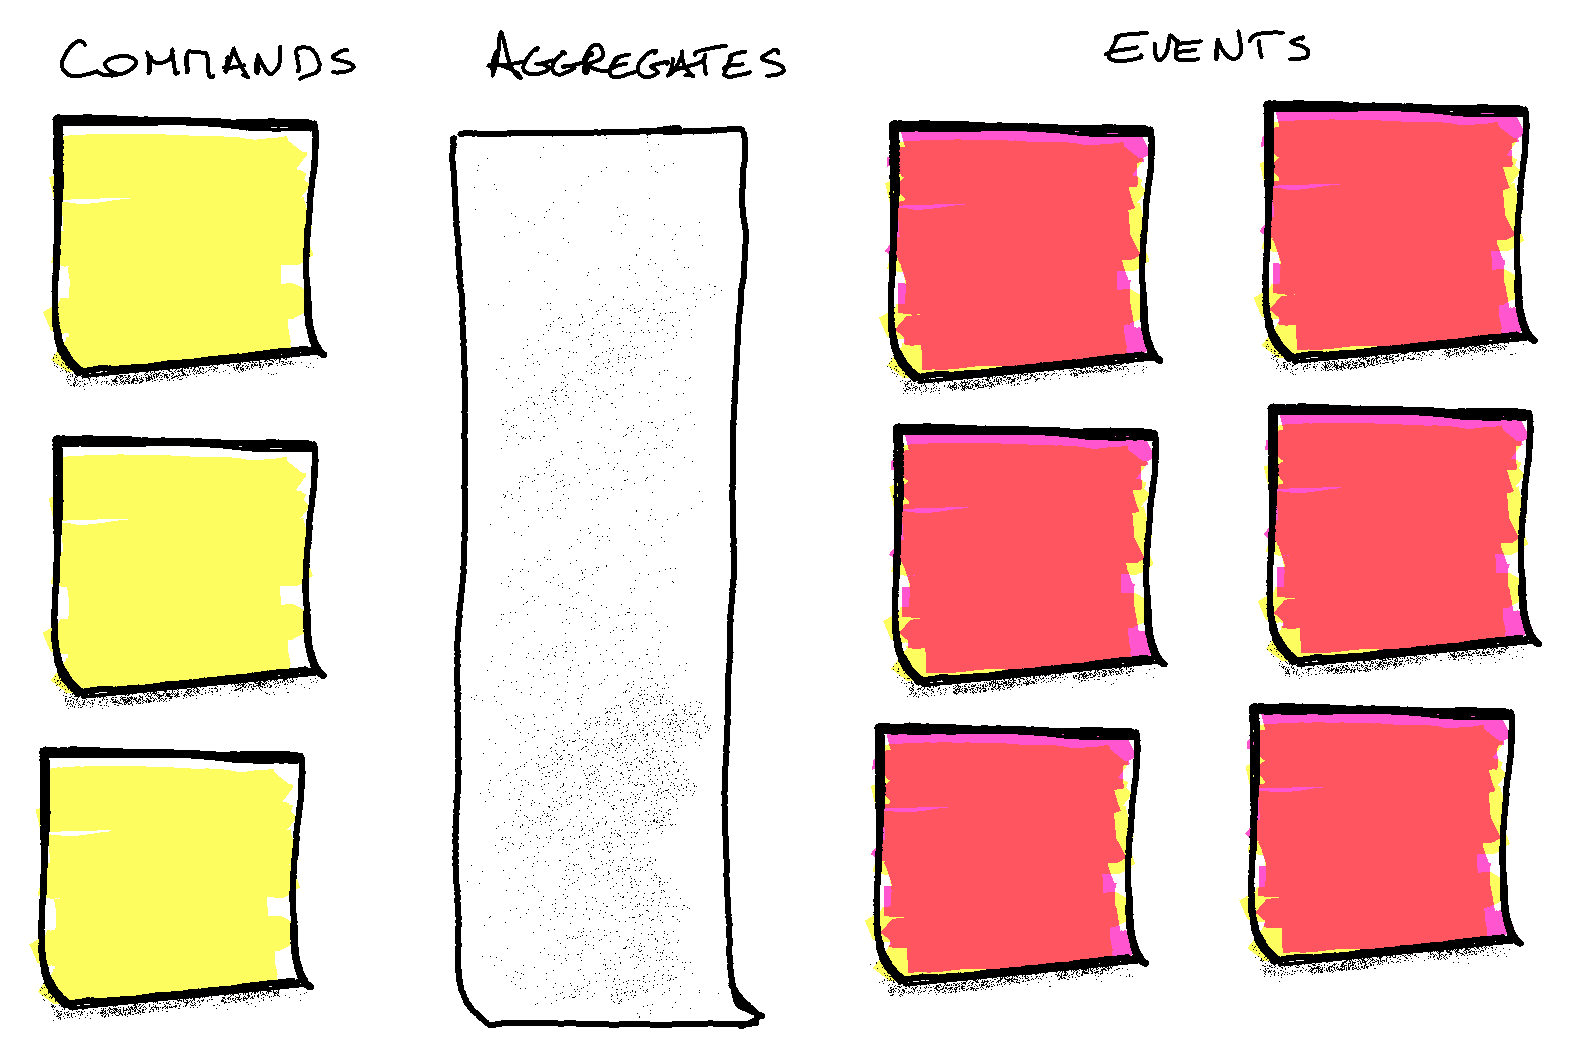 COMMANDS
AGGREGATES
EVENTS